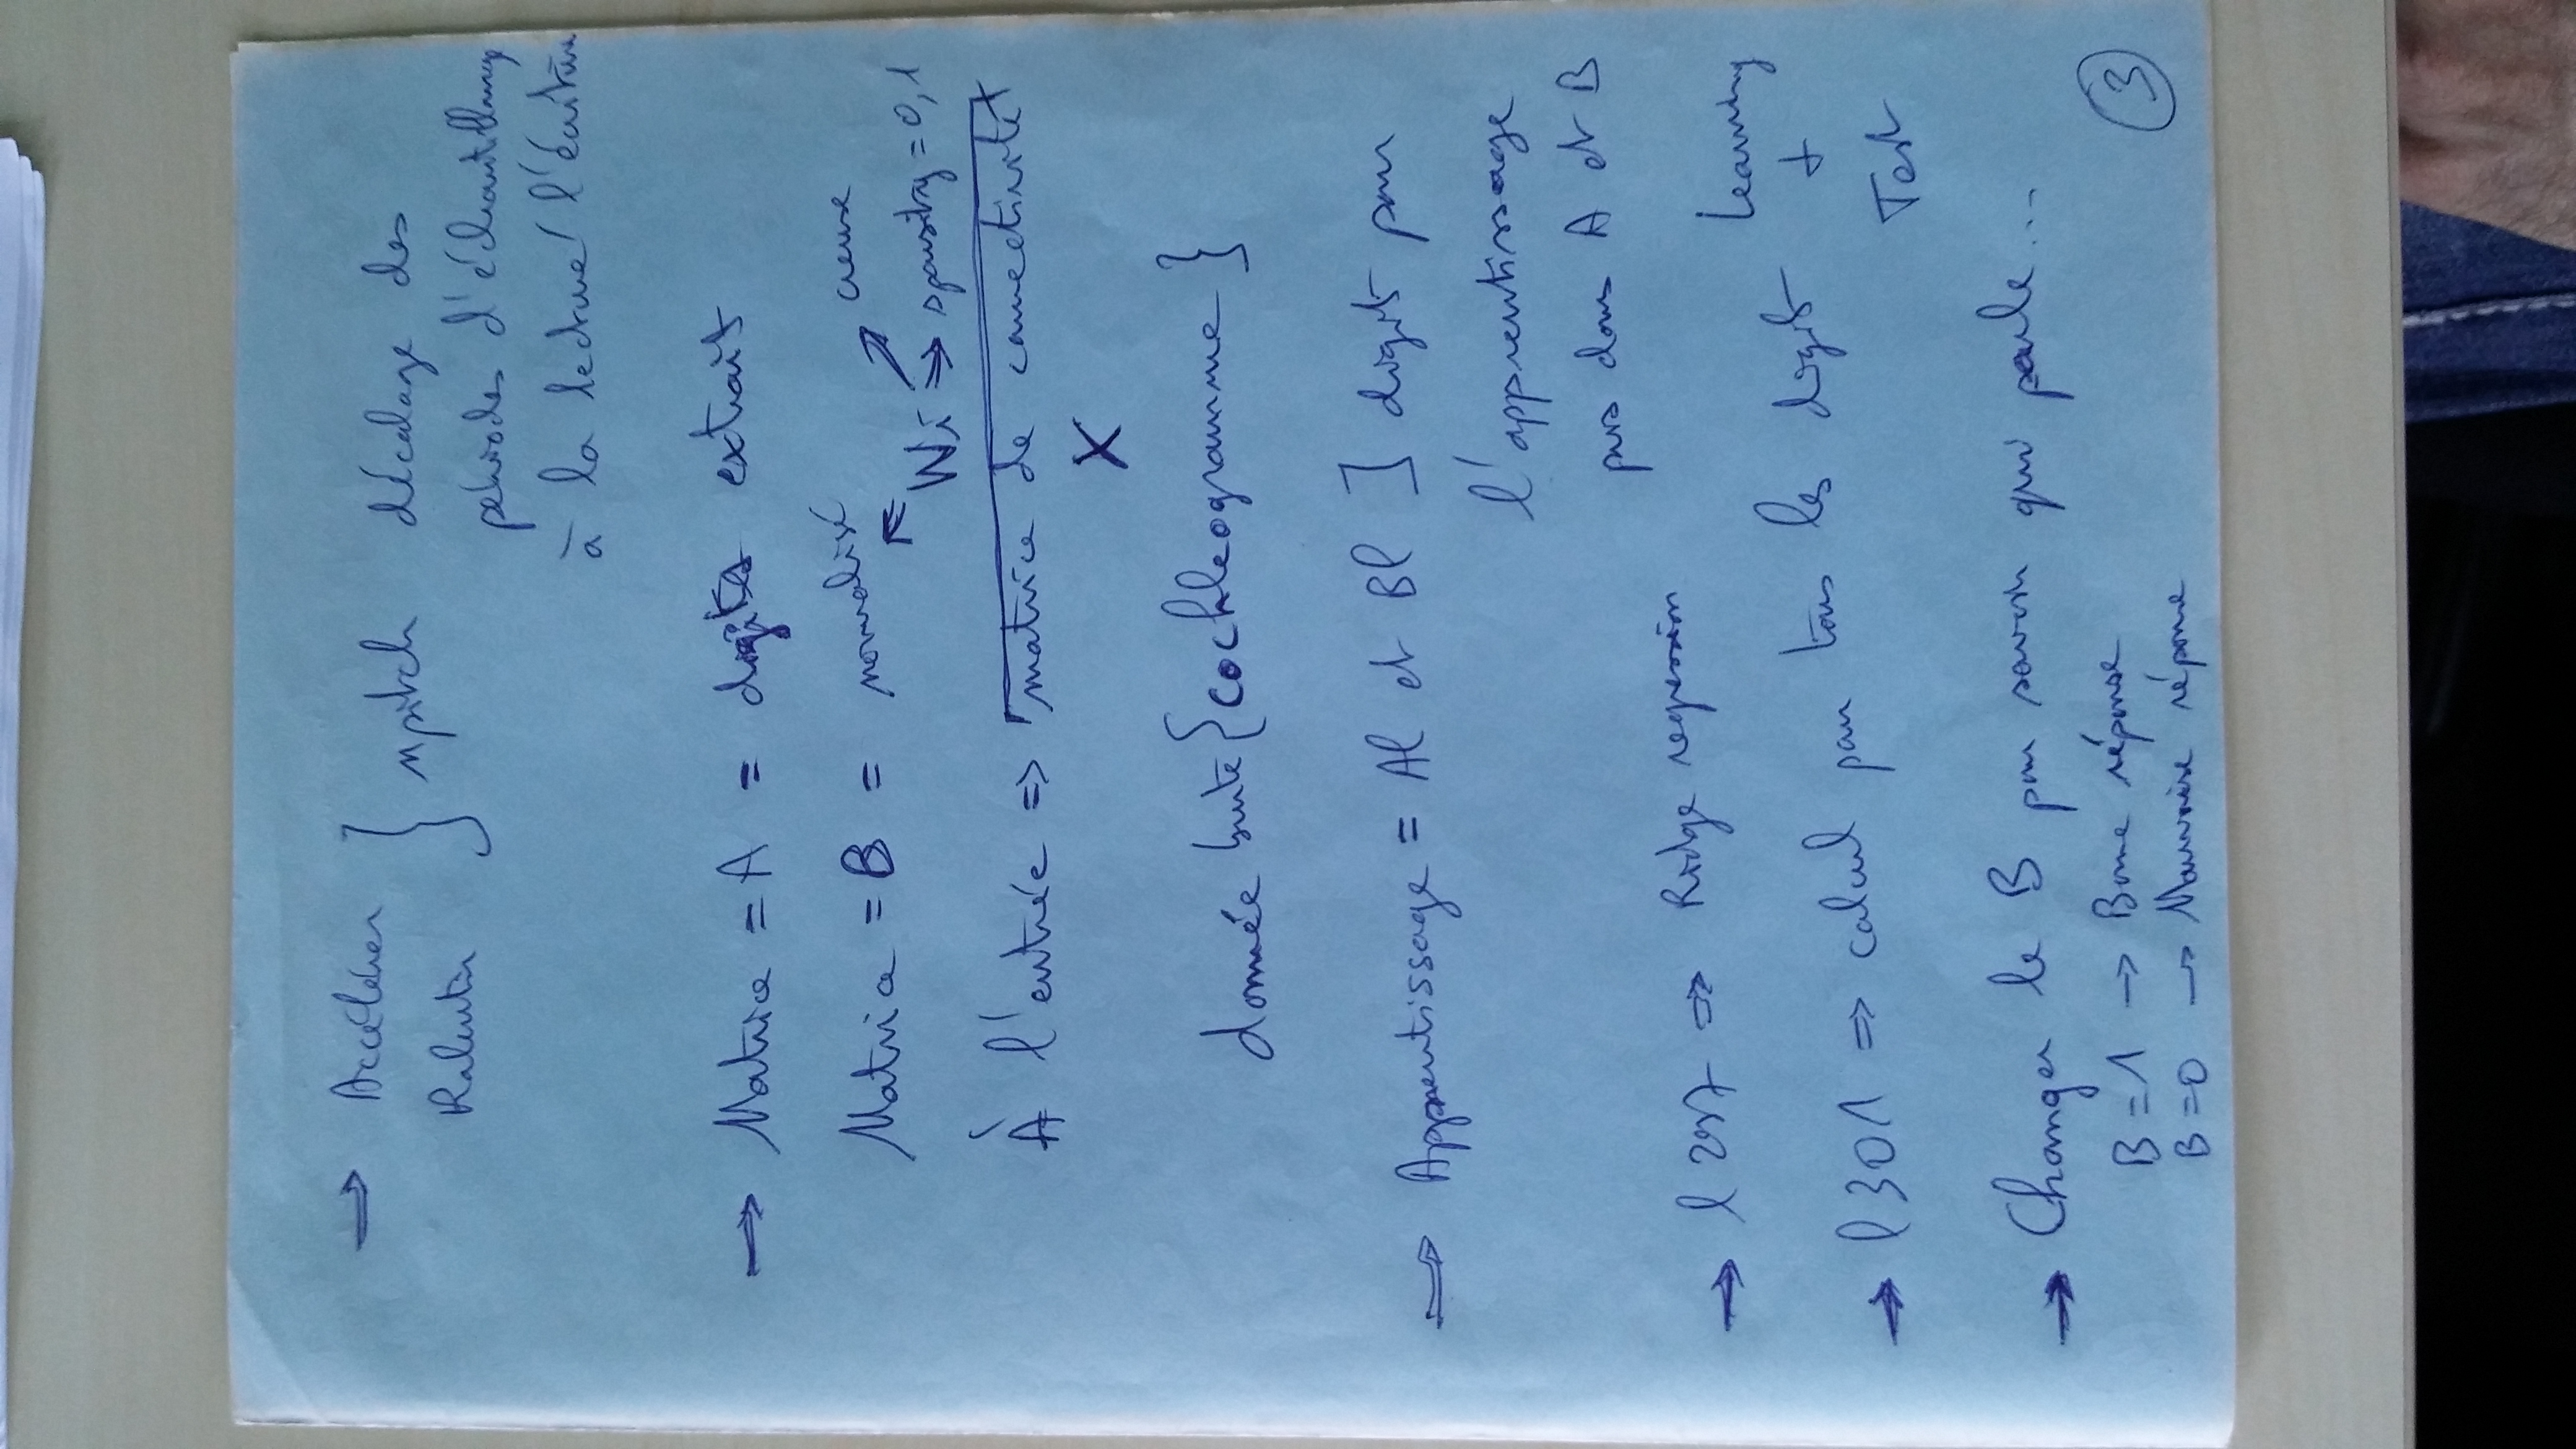 ⇒ Accélérer } npitch décalage des
Ralentir périodes d'échantillonnage
à la lecture / l'écriture
⇒ Matrice = A = digits extrait
Matrice = B = normalisé
creuse
Wi ⇒ sparsity = 0,1
À l'entrée ⇒ matrice de connectivité
X
donnée brute {cochleogramme}
⇒ Apprentissage = Al et Bl ] digit pour
l'apprentissage
pris dans A et B
→ l 297 ⇒ Ridge regression
→ l 301 ⇒ calcul pour tous les digit Learning
+
Test
→ Changer le B pour savoir qui parle...
B = 1 → Bonne réponse
B = 0 → Mauvaise réponse
3